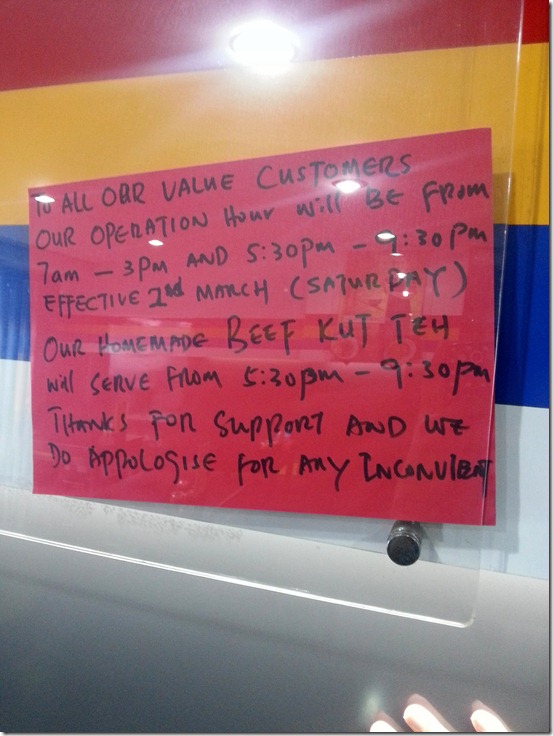 To ALL OUR VALUE CUSTOMERS
OUR OPERATION HOUR will BE FROM
7am – 3Pm AND 5:30pm – 9:30Pm
EFFECTIVE 2nd MARCH (SATURDAY)
OUR HOMEMADE BEEF KUT TEH
will SERVE FROM 5:30pm – 9:30pm
THANKS FOR SUPPORT AND WE
DO APPOLOGISE FOR ANY INCONVIENT